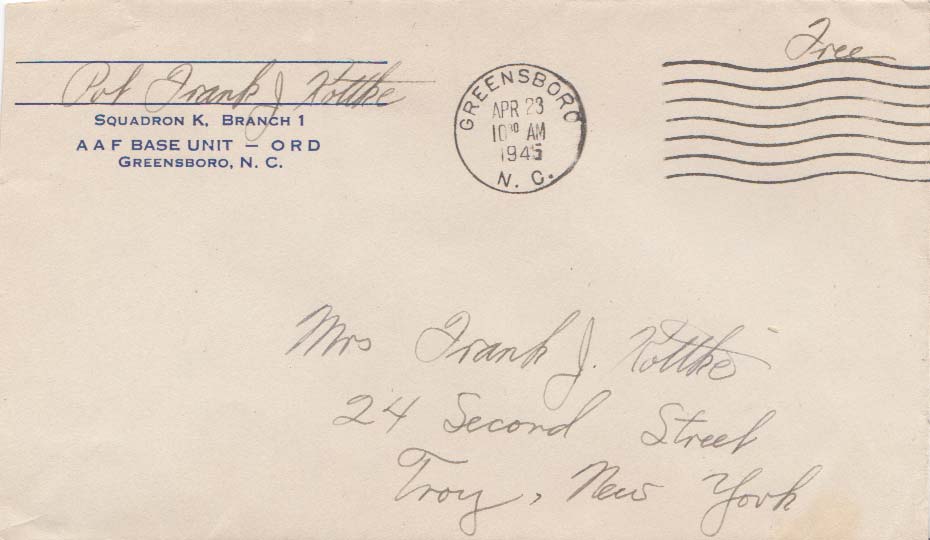 Free
Pvt Frank J Kottke
SQUADRON K, BRANCH 1
AAF BASE UNIT — ORD
GREENSBORO, N. C.
GREENSBORO
APR 23
10 00 AM
1945
N. C.
Mrs Frank J. Kottke
24 Second Street
Troy, New York